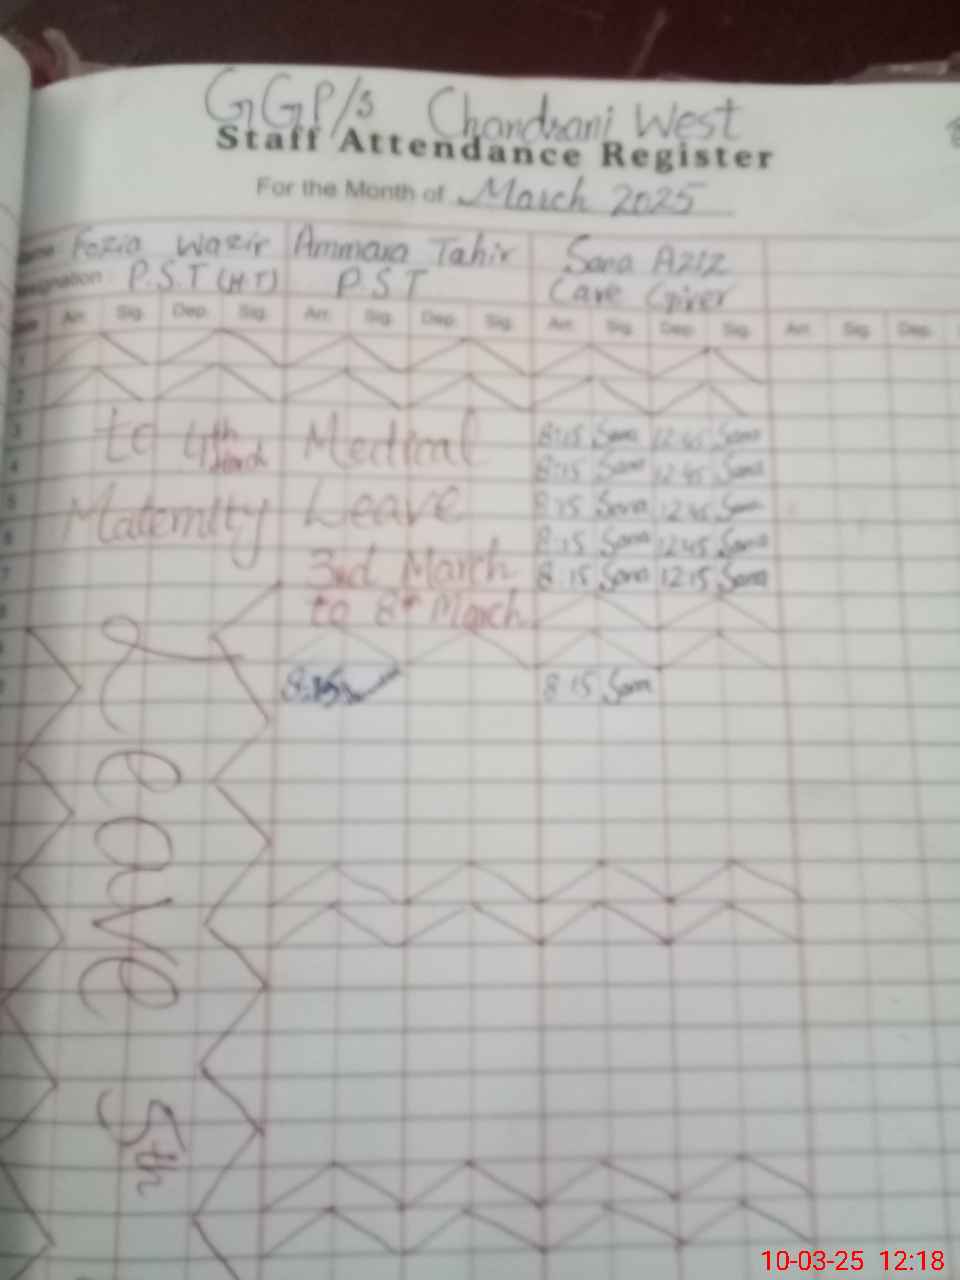 GGP/s Chandrani West
Staff Attendance Register
For the Month of March 2025
Name Fozia Wazir Ammara Tahir Sana Aziz
Designation P.S.T (H.T) P.S.T Care Giver
Date Arr. Sig. Dep. Sig. Arr. Sig. Dep. Sig. Arr. Sig. Dep. Sig. Arr. Sig. Dep.
1
2
3 to 4th March Medical 8:15 Sana 12:45 Sana
4 8:15 Sana 12:45 Sana
5 Maternity Leave 8:15 Sana 12:45 Sana
6 8:15 Sana 12:45 Sana
7 3rd March 8:15 Sana 12:15 Sana
8 to 8th March
8:15 8:15 Sana
Leave 5th
10-03-25 12:18